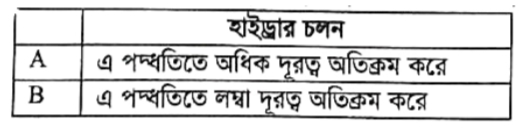 হাইড্রার চলন
A এ পদ্ধতিতে অধিক দূরত্ব অতিক্রম করে
B এ পদ্ধতিতে লম্বা দূরত্ব অতিক্রম করে